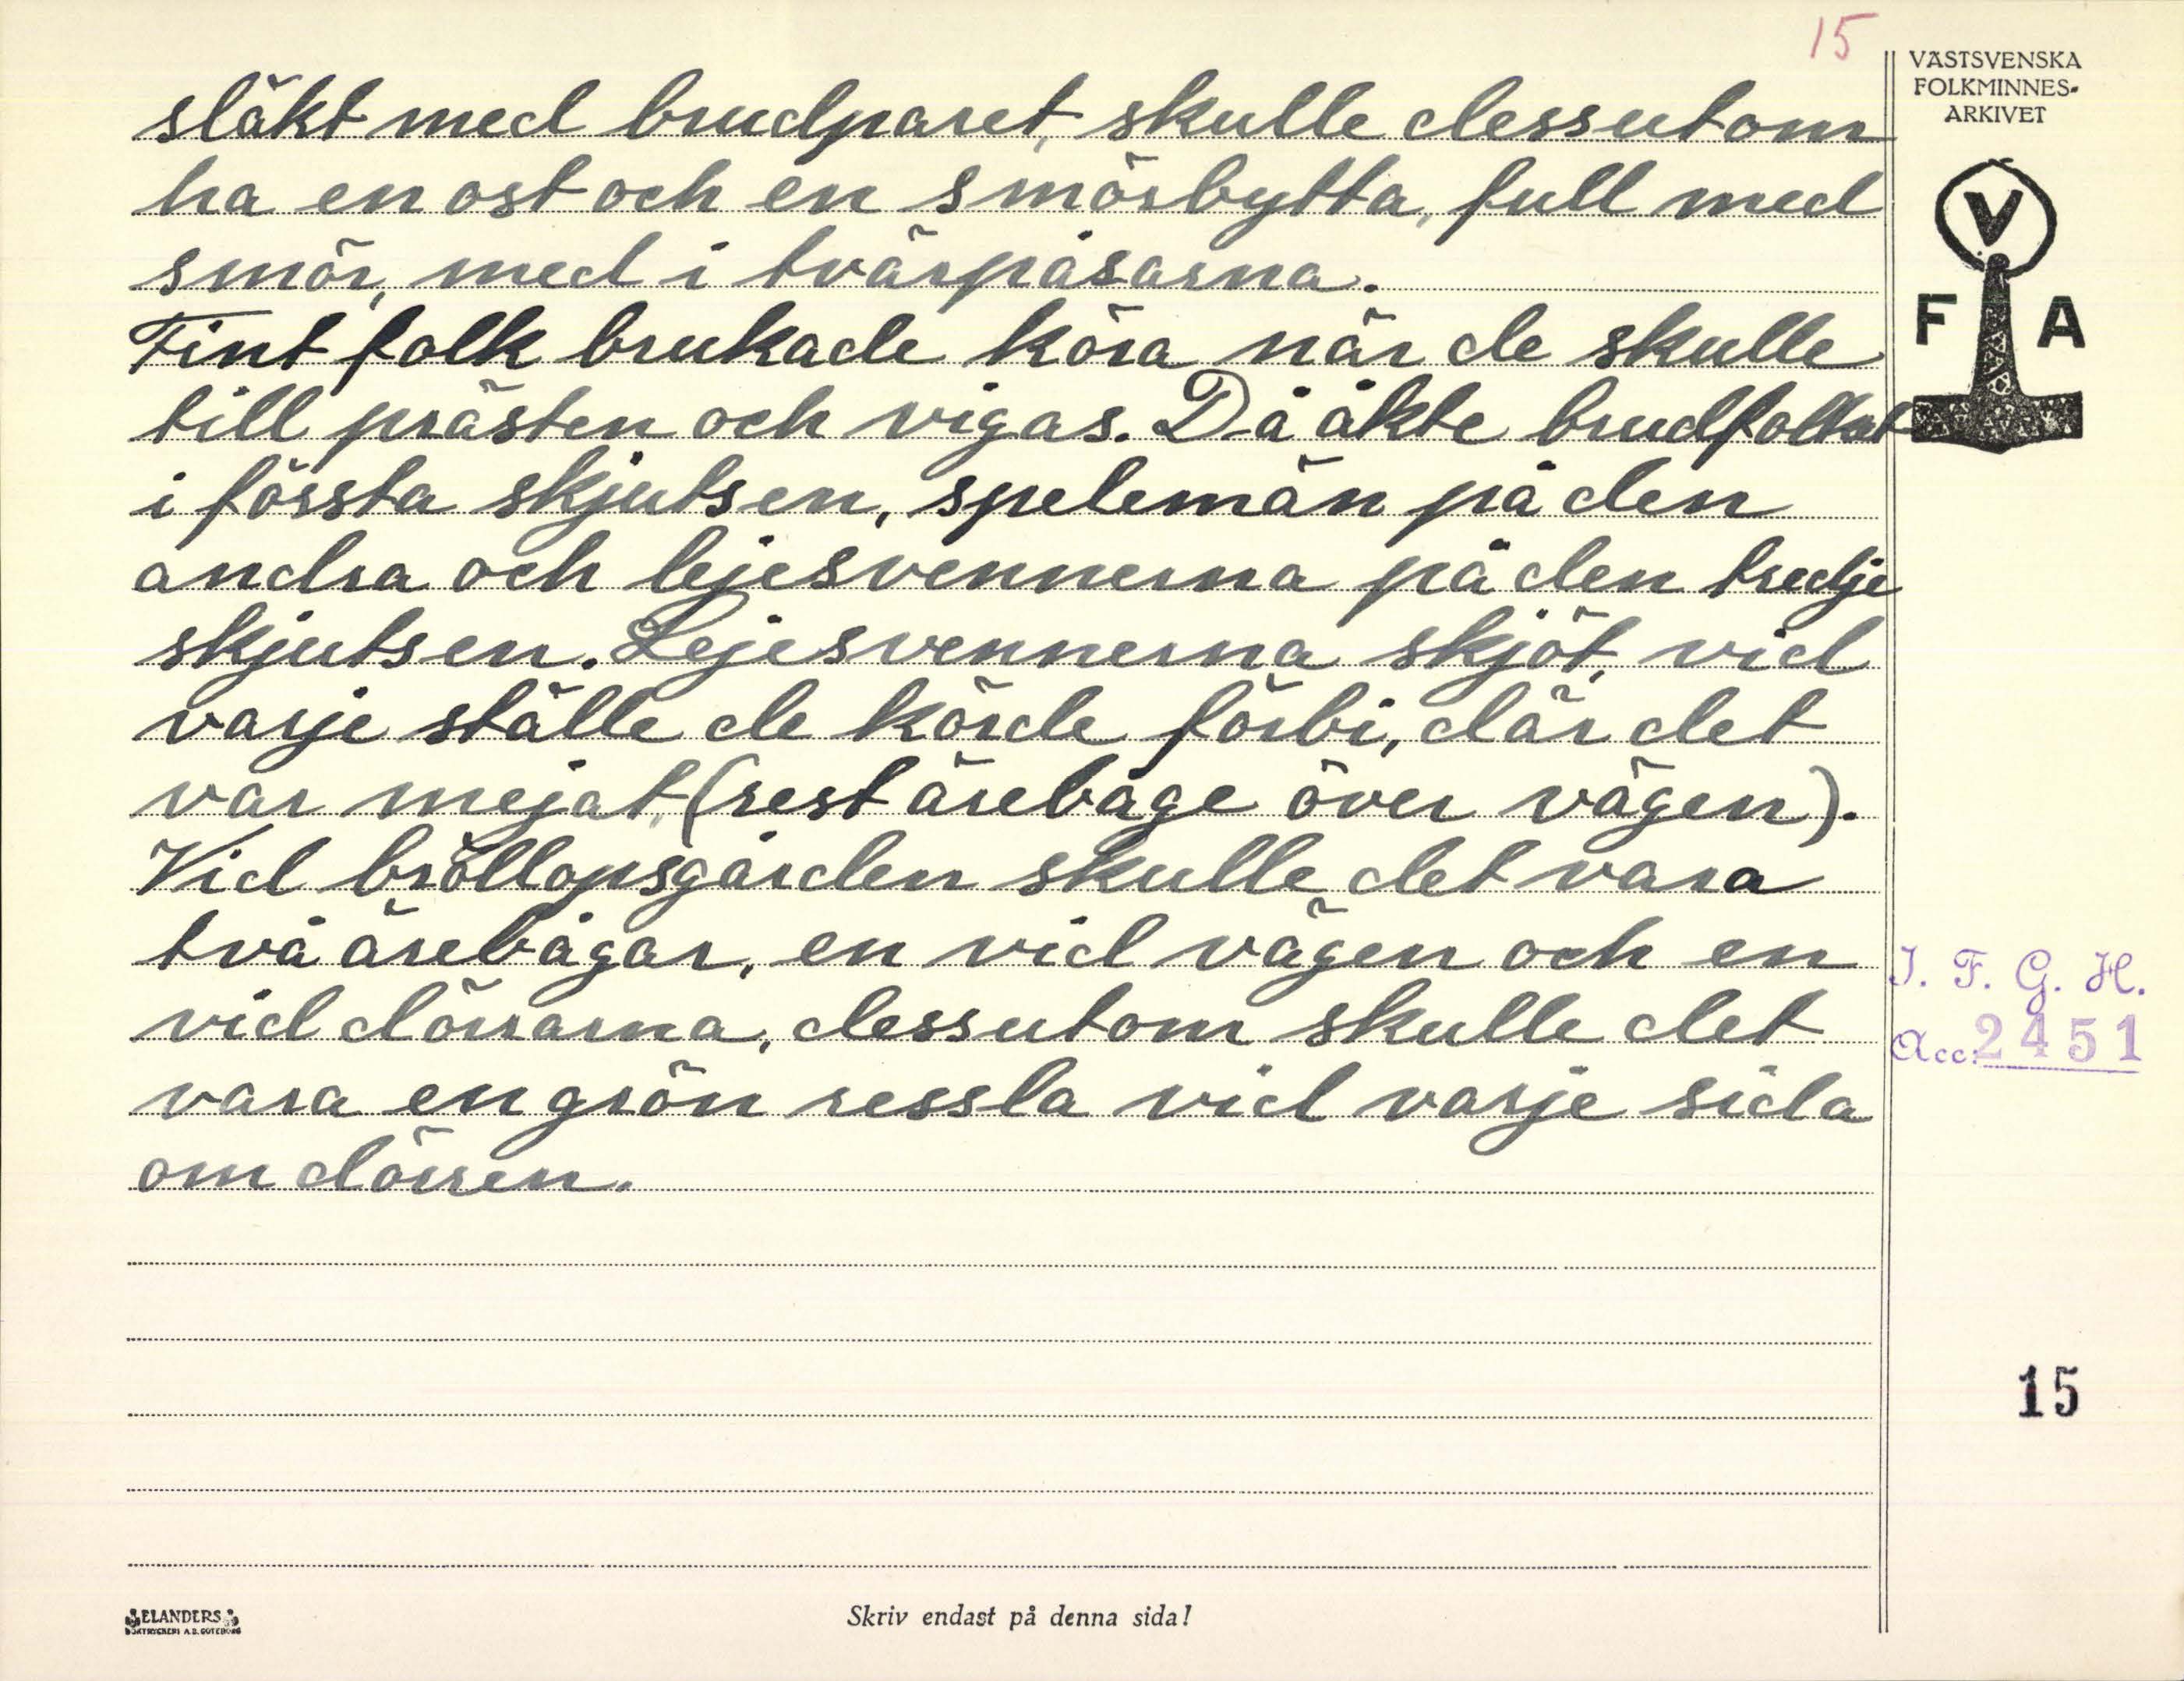 15
VÄSTSVENSKA
FOLKMINNES-
ARKIVET
V
F A
släkt med brudparet, skulle dessutom
ha en ost och en smörbytta, full med
smör, med i tvärpåsarna.
Fint folk brukade köra när de skulle
till prästen och vigas. Då åkte brudfolket
i första skjutsen, spelemän på den
andra och lejesvennerna på den tredje
skjutsen. Lejesvennerna skjöt, vid
varje ställe de körde förbi, där det
var mejat, (rest ärebåge över vägen).
Vid bröllopsgården skulle det vara
två ärebågar, en vid vägen och en
vid dörrarna, dessutom skulle det
vara en grön ressla vid varje sida
om dörren.
I. F. G. H.
Acc. 2451
15
ELANDERS
BOKTRYCKERI A.B. GÖTEBORG
Skriv endast på denna sida!